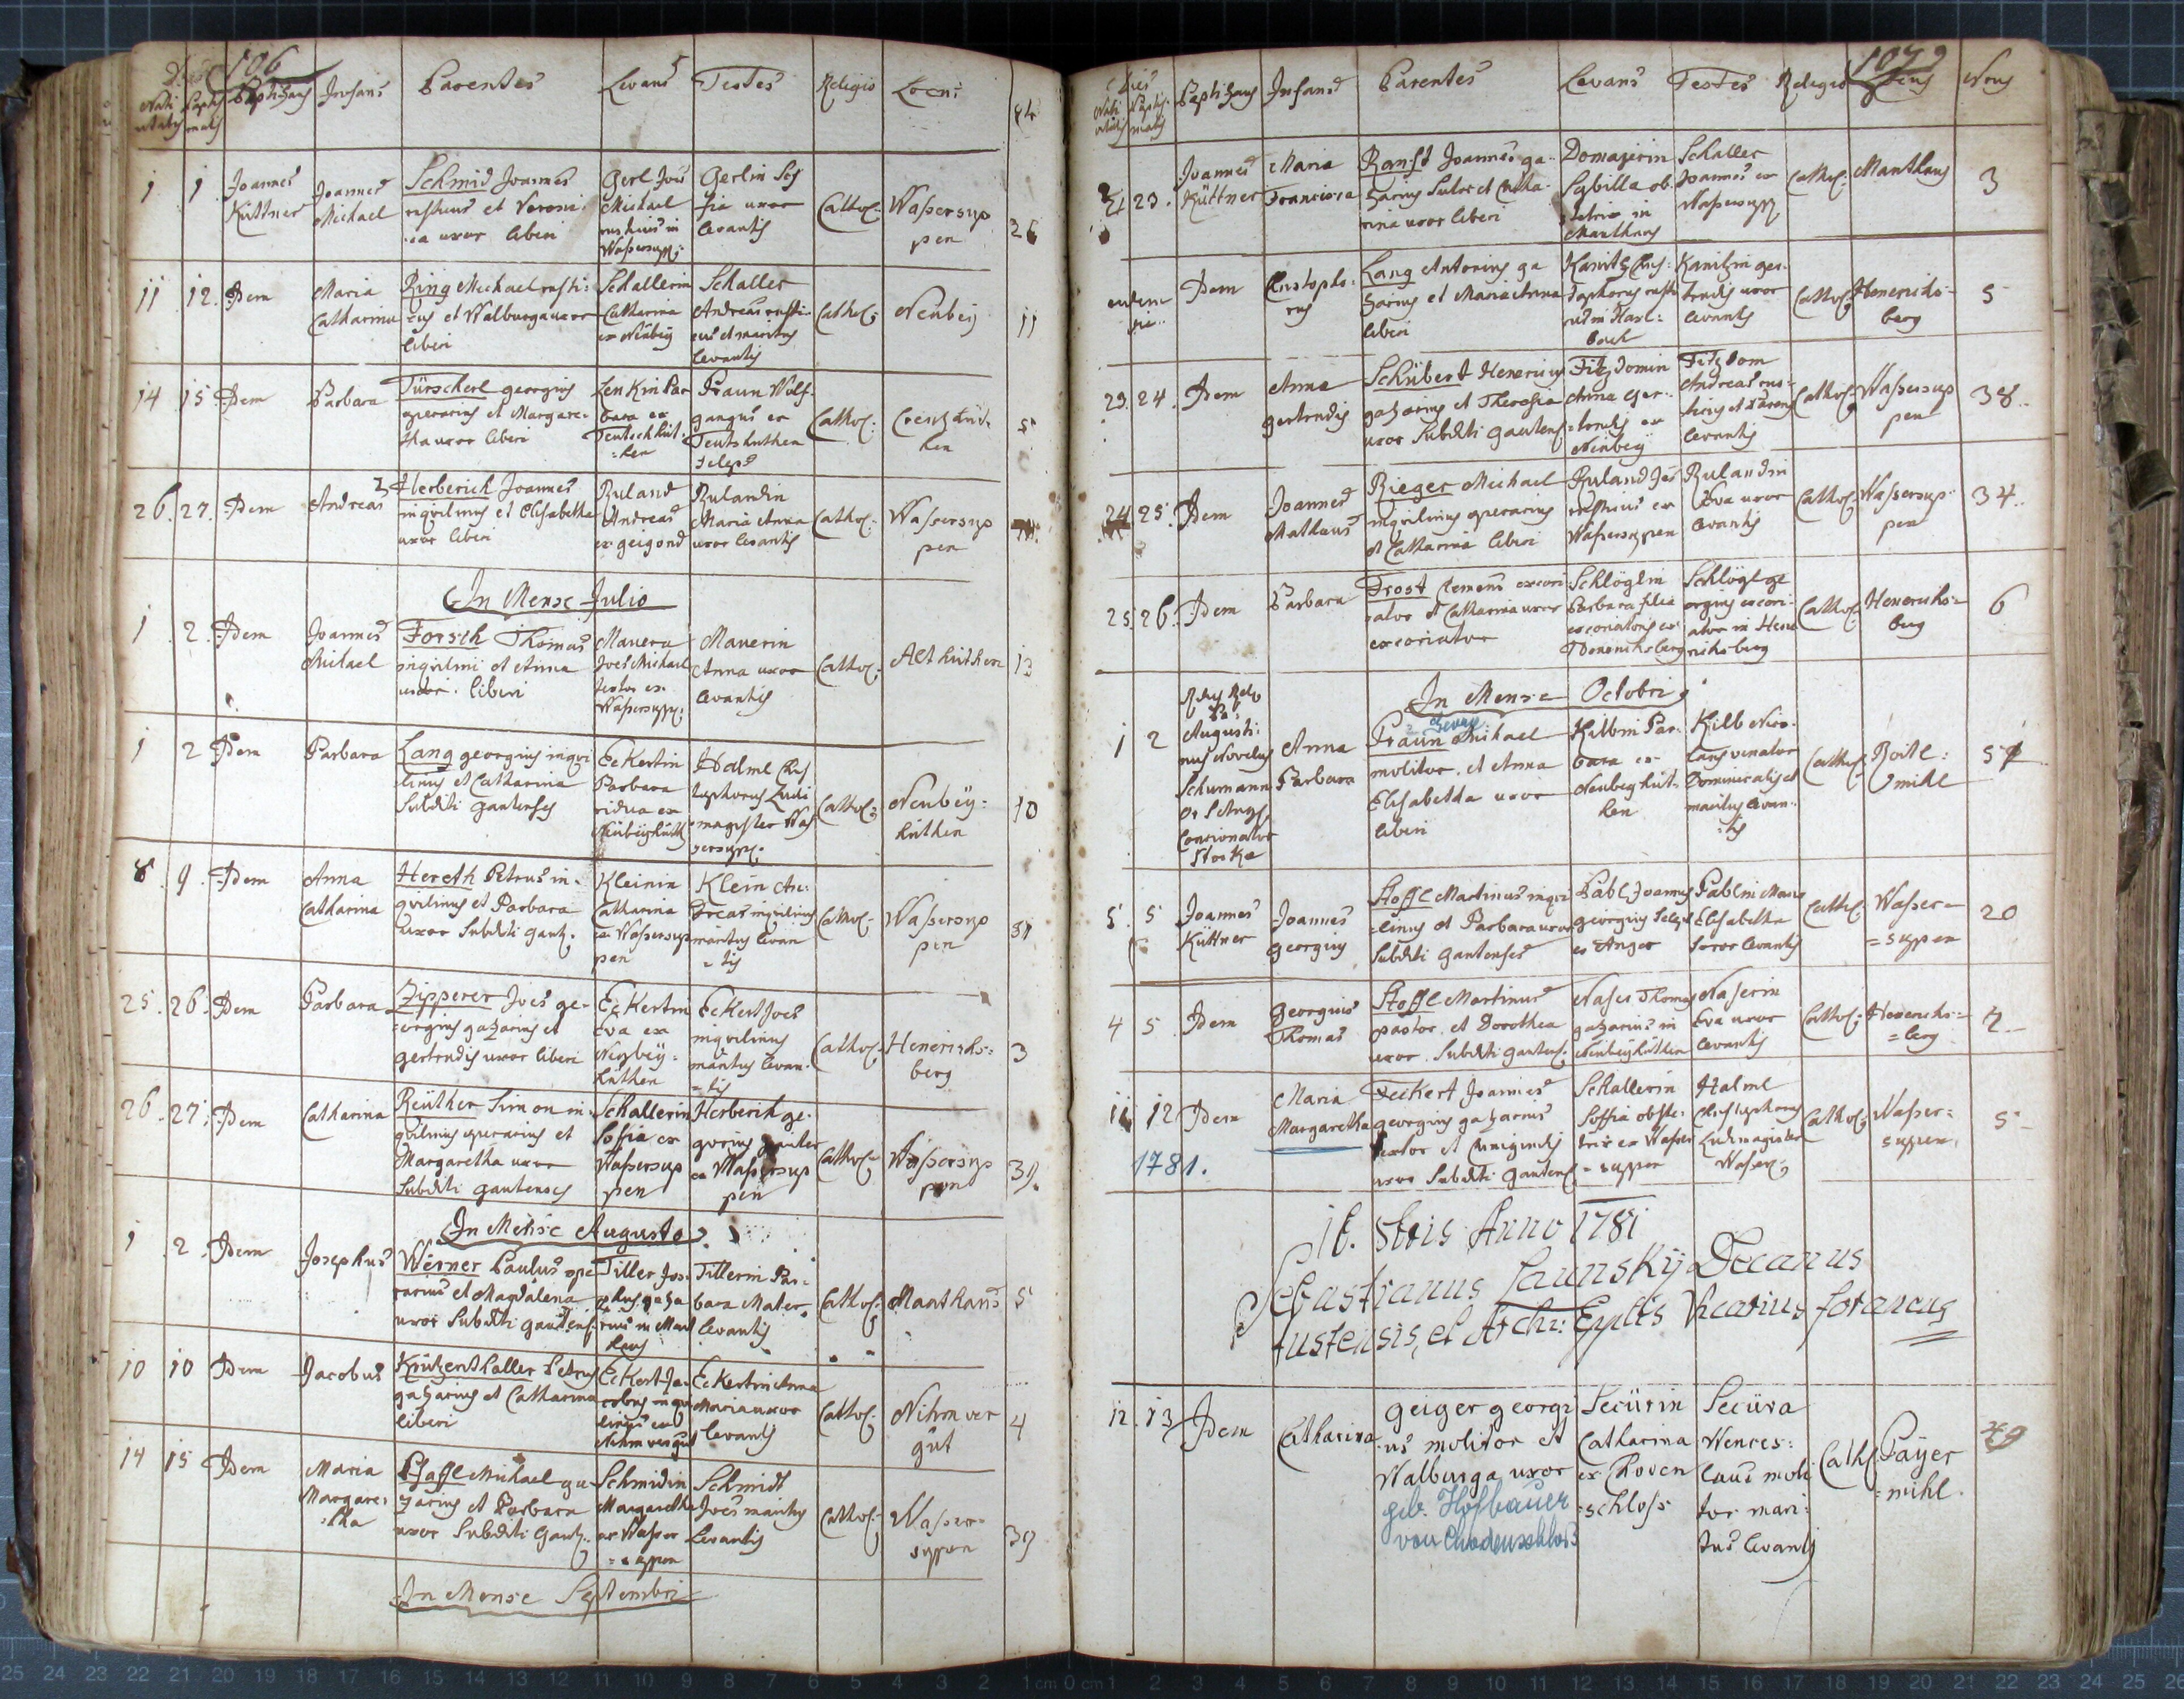 106
Dies
Nati
vitatis
Baptis
matis
Baptizans
Infans
Parentes
Levans
Testes
Religio
Locus
1
1
Joannes
Küttner
Joannes
Michael
Schmid Joannes
rusticus et Veroni
ca uxor liberi
Gerl Joes
Michael
rusticus in
Wassersupp:
Gerlin So
fia uxor
levantis
Cathol:
Wassersup
pen
11
12.
Idem
Maria
Catharina
Ring Michael rusti:
cus et Walburga uxor
liberi
Schallerin
Catharina
ex Neubeÿ
Schaller
Andreas rusti
cus et maritus
levantis
Cathol:
Neubeÿ
11
14
15
Idem
Barbara
Türscherl georgius
operarius et Margare
tha uxor liberi
Zenkin Bar
bara ex
Teutschhüt:
=ten
Praun Wolf
gangus ex
Teutshutten
Cathol:
5
26.
27.
Idem
Andreas
Herberich Joannes
inquilinus et Elisabetha
uxor liberi
Ruland
Andreas
Rulandin
Maria Anna
uxor levantis
Cathol:
Wassersup
pen
In Mense Julio
1
2.
Idem
Joannes
Michael
Forsch Thomas
inquilini et Anna
uxor. liberi
Maurer
Joes Michael
textor ex
Wassersupp:
Maurin
Anna uxor
levantis
Cathol:
Althütten
13
1
2
Idem
Barbara
Lang georgius inqui
linus et Catharina
Subditi gautenses
Eckertin
Barbara
vidua ex
Neubeÿhütt
Halml Chris
tophorus Ludi
magister Was
sersupp:
Cathol:
Neubeÿ:
hütten
10
8.
9.
Idem
Anna
Catharina
Hereth Petrus in-
quilinus et Barbara
uxor Subditi gaut:
Kleinin
Catharina
ex Wassersup
pen
Klein An:
dreas inquilinus
maritus levan
=tis
Cathol:
Wassersup
pen
31
25.
26.
Idem
Barbara
Zipperer Joes ge-
=orgius gazarius et
gertrudis uxor liberi
Eckertin
Eva ex
Neubeÿ:
hütten
Eckert Joes
inquilinus
maritus levan:
=tis
Cathol:
Henerichs:
berg
3
26.
27.
Idem
Catharina
Reüther Simon in-
quilinus operarius et
Margaretha uxor
Subditi gautenses
Schallerin
Soffia ex
Wassersup
pen
Herberich ge-
ex Wassersup
pen
Cathol:
Wassersup
pen
39.
In Mense Augusto
1
2.
Idem
Josephus
Werner Paulus ope
rarius et Magdalena
uxor Subditi gautens:
Tiller Jose
phus gaza
rius in Mat
haus
Tillerin Bar:
bara Mater
levantis
Cathol:
Maathaus
5
10
10
Idem
Jacobus
Krützenthaller Petrus
gazarius et Catharina
liberi
Eckert Ja
cobus inqui
linus ex
Nihmvergut
Eckertin Anna
Maria uxor
levantis
Cathol:
Nihmver
güt
4
14
15
Idem
Maria
Margare:
:tha
Michael ga
zarius et Barbara
uxor Subditi Gaut:
Schmidin
Margaretha
ex Wasser
=suppen
Schmidt
Joes maritus
Levantis
Cathol:
Wasser=
suppen
39
In Mense Septembri
107
Dies
Nati
vitatis
Baptis
matis
Baptizans
Infans
Parentes
Levans
Testes
Religio
Locus
Nrus
23.
Joannes
Küttner
Maria
Francisca
Ranft Joannes ga-
zarius Sutor et Catha-
rina uxor liberi
Domaierin
Sybilla ob
stetrix in
Manthaus
Schaller
Joannes ex
Wassersupp
Cathol:
Manthaus
3
eadem
die
Idem
Christopho:
rus
Lang Antonius ga
zarius et Maria Anna
liberi
Kanitz Chris:
tophorus rusti
cus in Harl:
bach
Kanitzin ger-
trudis uxor
levantis
Cathol:
Henerichs-
berg
5
23.
24.
Idem
Anna
gertrudis
Schübert Henericus
gazarius et Theresia
uxor Subditi gautens
Fitz Domin
Anna Ger-
=trudis ex
Neubeÿ
Fitz Dom
Andreas rus-
ticus et Parens
levantis
Cathol:
Wassersup
pen
38.
24
25.
Idem
Joannes
Mathaus
Rieger Michael
inquilinus operarius
et Catharina liberi
Ruland Joes
rusticus ex
Wassersuppen
Rulandin
Eva uxor
levantis
Cathol:
Wassersup-
pen
34.
25.
26.
Idem
Barbara
Frost Clemens excori
ator et Catharina uxor
excoriator
Schlöglin
Barbara filia
excoriatoris ex
Henerichsberg
Schlögl ge
orgius excori
ator in Hene
richsberg
Cathol:
Henerichs=
berg
6
In Mense Octobri
1
2
Augusti:
nus Novelus
Schumann
Concionator
Stocka
Anna
Barbara
Praun Michael
molitor et Anna
Elisabetha uxor
liberi
Kilbin Bar-
bara ex
Neubeghüt-
ten
Kilb Nico-
laus venator
Dominicalis et
maritus levan-
=tis
Cathol:
mihl
5
5
Joannes
Küttner
Joannes
georgius
Stoffl Martinus inqui
=linus et Barbara uxor
Subditi gautenses
Pabl Joannes
georgius
ex Anger
Pablin Maria
Elisabetha
Soror levantis
Cathol:
Wasser=
=suppen
20
4
5
Idem
Georgius
Thomas
Stoffl Martinus
pastor et Dorothea
uxor Subditi gautens:
Naser Thomas
gazarius in
Neubeÿhütten
Naserin
Eva uxor
levantis
Cathol:
Henerichs=
=berg
11
12
Idem
Maria
Margaretha
Feckert Joannes
georgius gazarius
textor et Cunigundis
uxor Subditi gautens
Schallerin
Soffia obste-
trix ex Wasser
=suppen
Halml
Christophorus
Ludimagister
Wassers:
Cathol:
Wasser=
suppen
5
1781.
16. 8bris Anno 1781
Sebastianus Launsky Decanus
tustensis, et Archi: Epplis Vicarius foraneus
12.
13
Idem
Catharina
geiger georgi
us molitor et
Walburga uxor
geb. Hofbauer
von Chodenschloß
Secürin
Catharina
ex Choden
=schloss
Secüra
Wences:
laus moli
tor mari:
tus levantis
Cathl
Payer
=mihl.